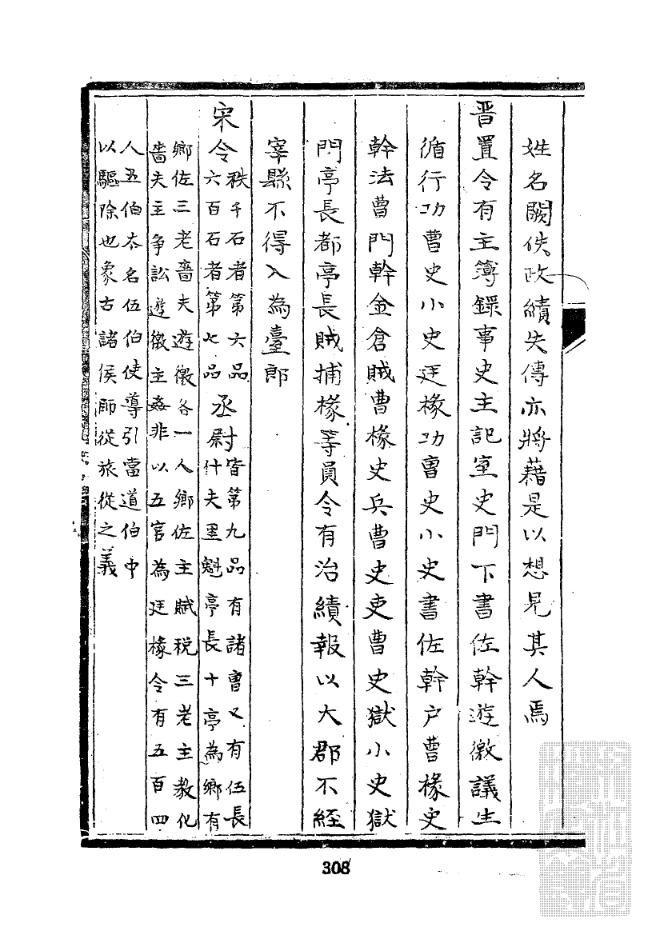 姓名闕佚政績失傳亦將藉是以想見其人焉
晋置令有主簿錄事史主記室史門下書佐幹遊徼議生
循行功曹史小史廷掾功曹史小史書佐幹户曹掾史
幹法曹門幹金倉賊曹掾史兵曹史吏曹史獄小史獄
門亭長都亭長賊捕掾等員令有治績報以大郡不經
宰縣不得入為臺郎
宋令秩千石者第六品
六百石者第七品
丞尉皆第九品有諸曹又有伍長
什夫里魁亭長十亭為鄉有
鄉佐三老嗇夫遊徼各一人鄉佐主賦税三老主教化
嗇夫主争訟遊徼主姦非以五官為廷掾令有五百四
人五伯本名伍伯使導引當道伯中
以驅除也象古諸侯師從旅從之義
308